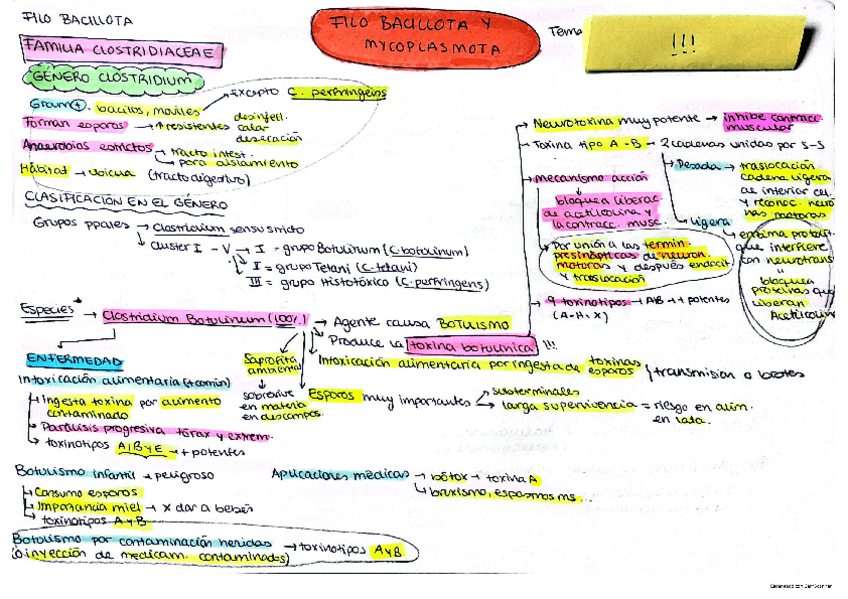 FILO BACILLOTA
FILO BACILLOTA Y
MYCOPLASMOTA
Tema
!!!
FAMILIA CLOSTRIDIACEAE
GÉNERO CLOSTRIDIUM
Gram+, bacilos, moviles → excepto C. perfringens
Forman esporos → ↑ resistentes desinfecl.
calor
desecación
Anaerobios estrictos → tracto intest.
→ para aislamiento
Hábitat → (tracto digestivo)
CLASIFICACIÓN EN EL GÉNERO
Grupos ppales → Clostridium sensu stricto
↓ cluster I - V → I - grupo Botulinum (C. botolinum)
I = grupo Tetani (C. tetani)
III = grupo Histotóxico (C. perfringens)
→ Neurotoxina muy potente → inhibe contracc.
muscular
→ Toxina tipo A - B → 2 cadenas unidas por S-S
→ Pesada → traslocación
cadena ligera
al interior cel
y reconoc. neuro
nas motoras
→ ligera → enzima proteol.
que interfiere
con neurotrans
"
bloquea
proteinas que
liberan
Acetilcolin
→ mecanismo acción
bloquea liberac.
de acetilcolina y
la contracc musc.
Por unión a las termin.
presinápticas de neuron.
motoras y después endocit.
y traslocación
→ 9 toxinotipos → A, B → + potentes
(A-H, X)
Especies → Clostridium Botulinum (100%) → Agente causa BOTULISMO
Produce la toxina botulínica !!!
Intoxicación alimentaria por ingesta de toxinas
esporos
transmisión a bebés
ENFERMEDAD
Intoxicación alimentaria (+común)
Ingesta toxina por alimento
contaminado
Parálisis progresiva tórax y extrem.
toxinotipos A, B y E → + potentes
Saprofita
ambiental
sobrevive
en materia
en descompos.
Esporos muy importantes → subterminales
larga supervivencia = riesgo en alim.
en lata.
Botulismo infantil → peligroso
Consumo esporos
Importancia miel → X dar a bebés
toxinotipos A y B
Aplicaciones médicas → bótox → toxina A
bruxismo, espasmos ms...
Botulismo por contaminación heridas → toxinotipos A y B
(o inyección de medicam. contaminados)
Escaneado con CamScanner